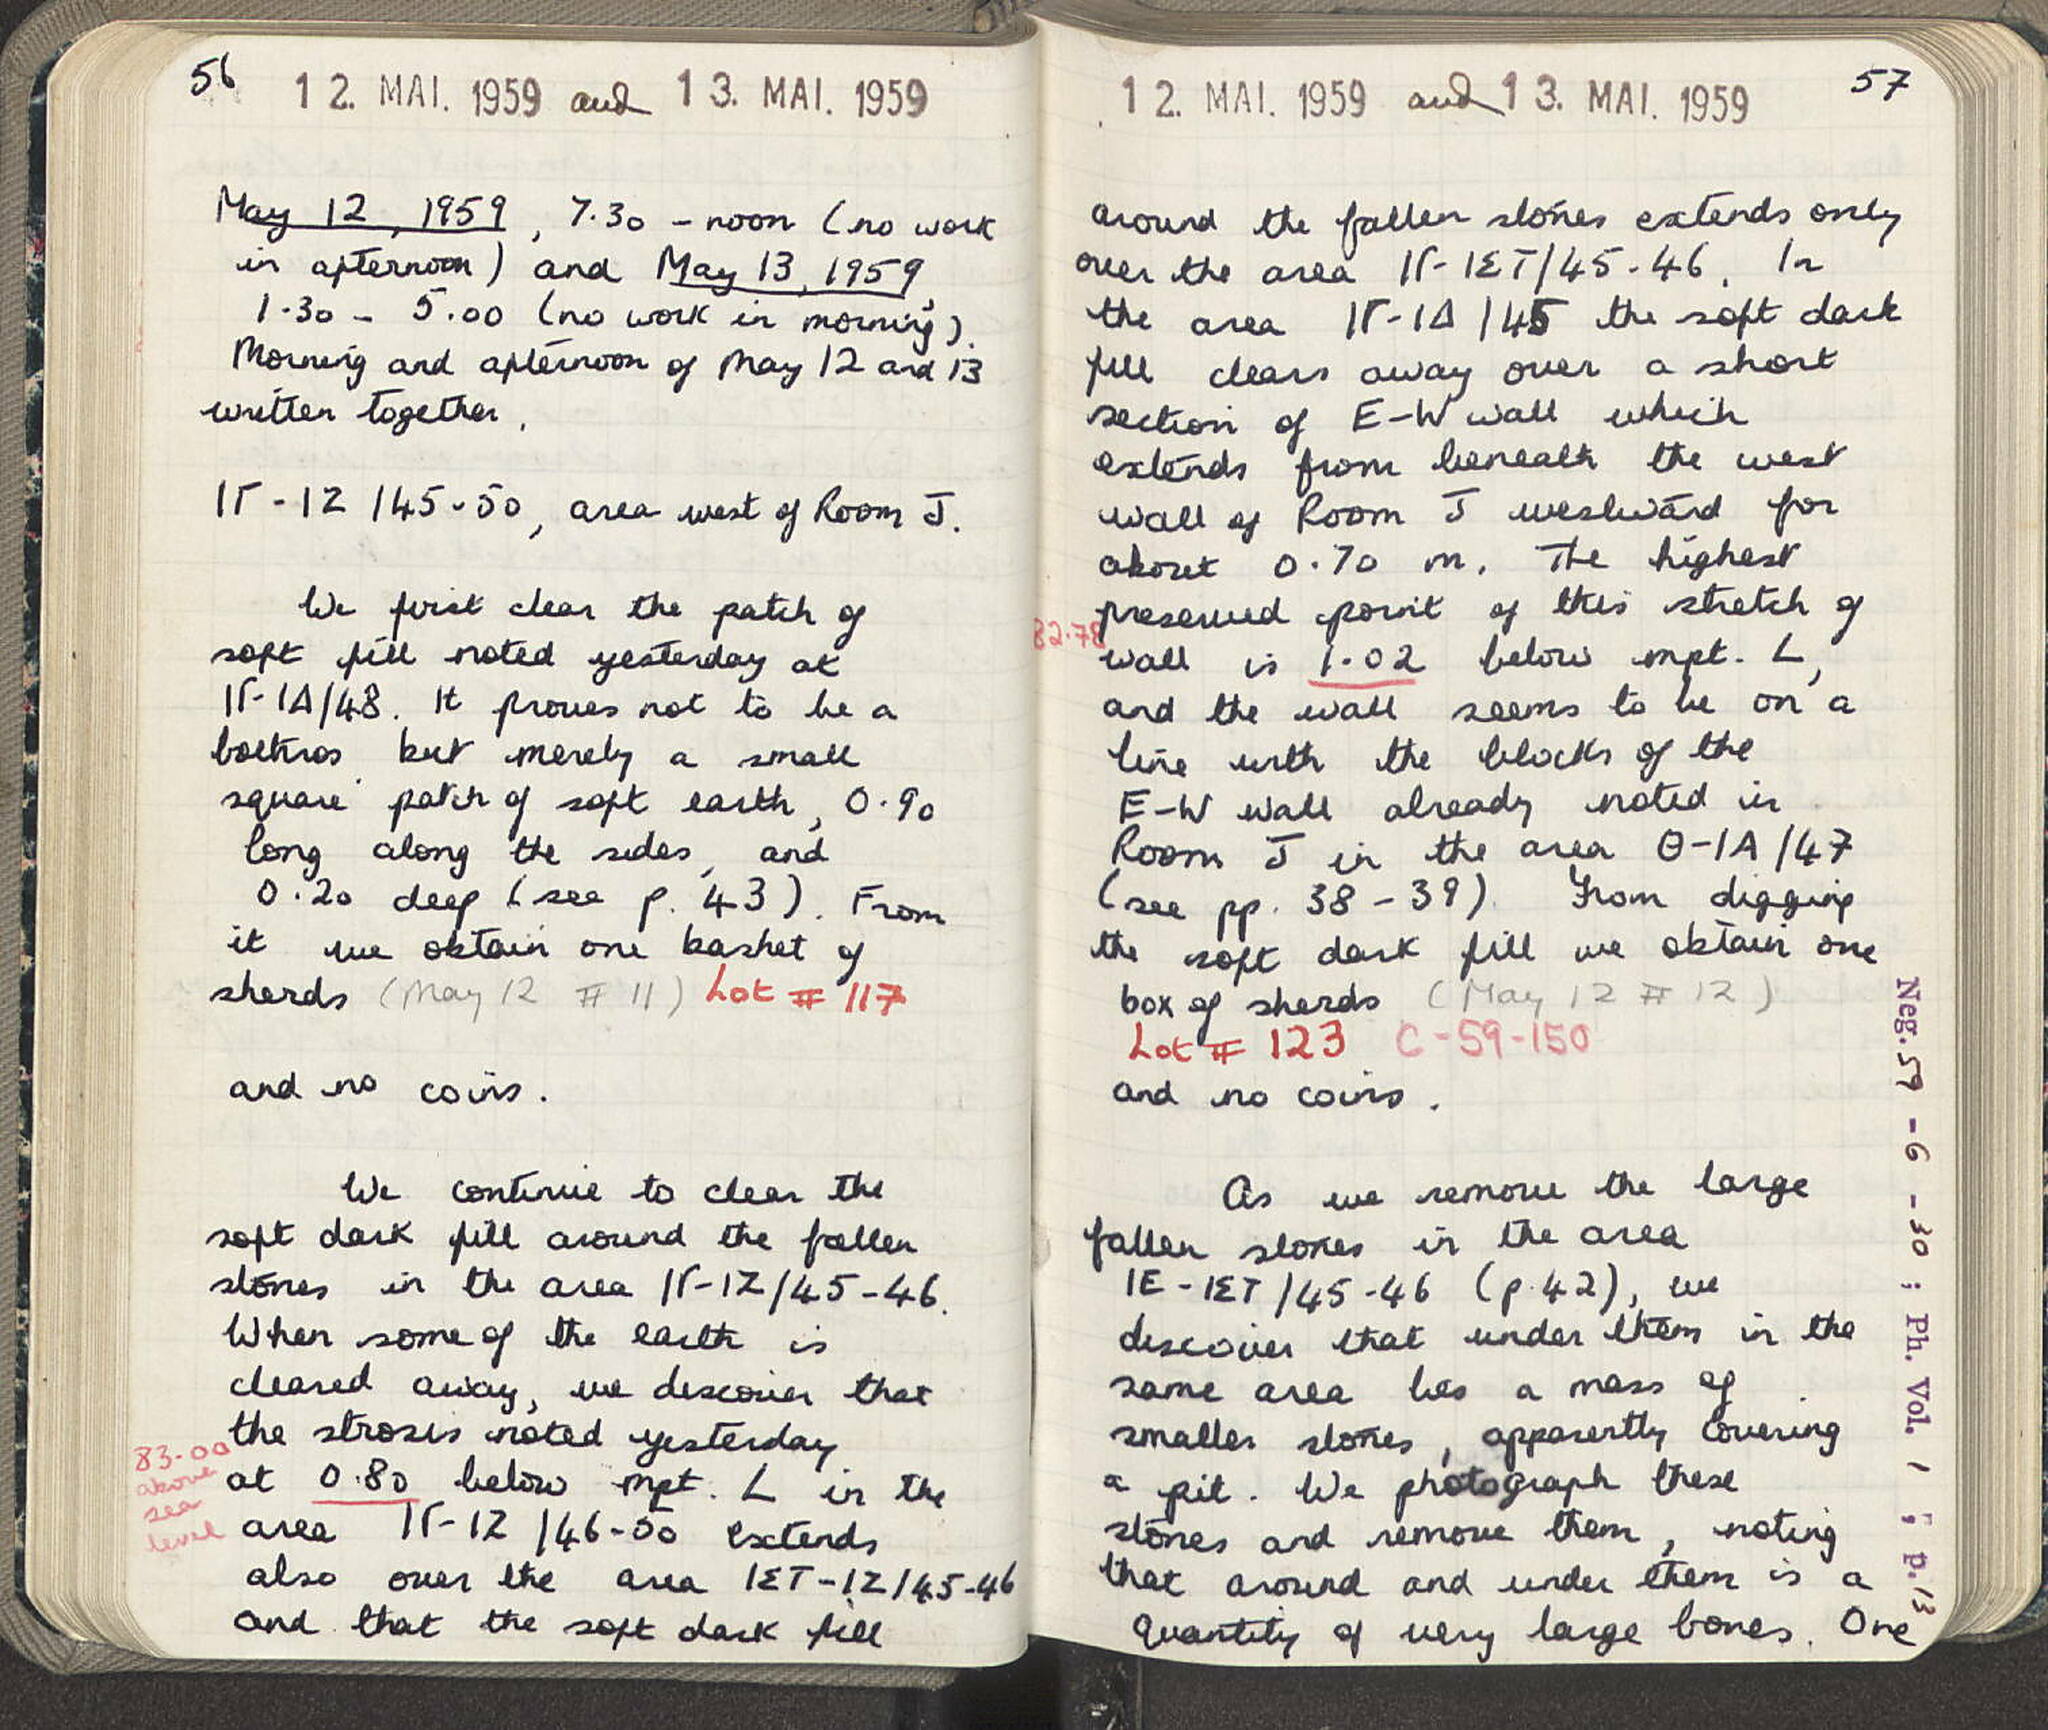 56
12. MAI. 1959 and 13. MAI. 1959
May 12, 1959, 7.30 - noon (no work
in afternoon) and May 13, 1959,
1.30 - 5.00 (no work in morning).
Morning and afternoon of May 12 and 13
written together.
ΙΓ-ΙΖ/45-50, area west of Room J.
We first clear the patch of
soft fill noted yesterday at
ΙΓ-ΙΔ/48. It proves not to be a
bothros but merely a small
square patch of soft earth, 0.90
long along the sides, and
0.20 deep (see p. 43). From
it we obtain one basket of
sherds (May 12 # 11) Lot # 117
and no coins.
We continue to clear the
soft dark fill around the fallen
stones in the area ΙΓ-ΙΖ/45-46.
When some of the earth is
cleared away, we discover that
the strosis noted yesterday
83.00
above
sea
level
at 0.80 below mpt. L in the
area ΙΓ-ΙΖ/46-50 extends
also over the area ΙΣΤ-ΙΖ/45-46
and that the soft dark fill
12. MAI. 1959 and 13. MAI. 1959
57
around the fallen stones extends only
over the area ΙΓ-ΙΣΤ/45-46. In
the area ΙΓ-ΙΔ/45 the soft dark
fill clears away over a short
section of E-W wall which
extends from beneath the west
wall of Room J westward for
about 0.70 m. The highest
preserved point of this stretch of
82.78
wall is 1.02 below mpt. L,
and the wall seems to be on a
line with the blocks of the
E-W wall already noted in
Room J in the area Θ-ΙΑ/47
(see pp. 38-39). From digging
the soft dark fill we obtain one
box of sherds (May 12 # 12)
Lot # 123 C-59-150
and no coins.
As we remove the large
fallen stones in the area
ΙΕ-ΙΣΤ/45-46 (p.42), we
discover that under them in the
same area lies a mass of
smaller stones, apparently covering
a pit. We photograph these
stones and remove them, noting
that around and under them is a
quantity of very large bones. One
Neg. 59-6-30; Ph. Vol. I; p. 13